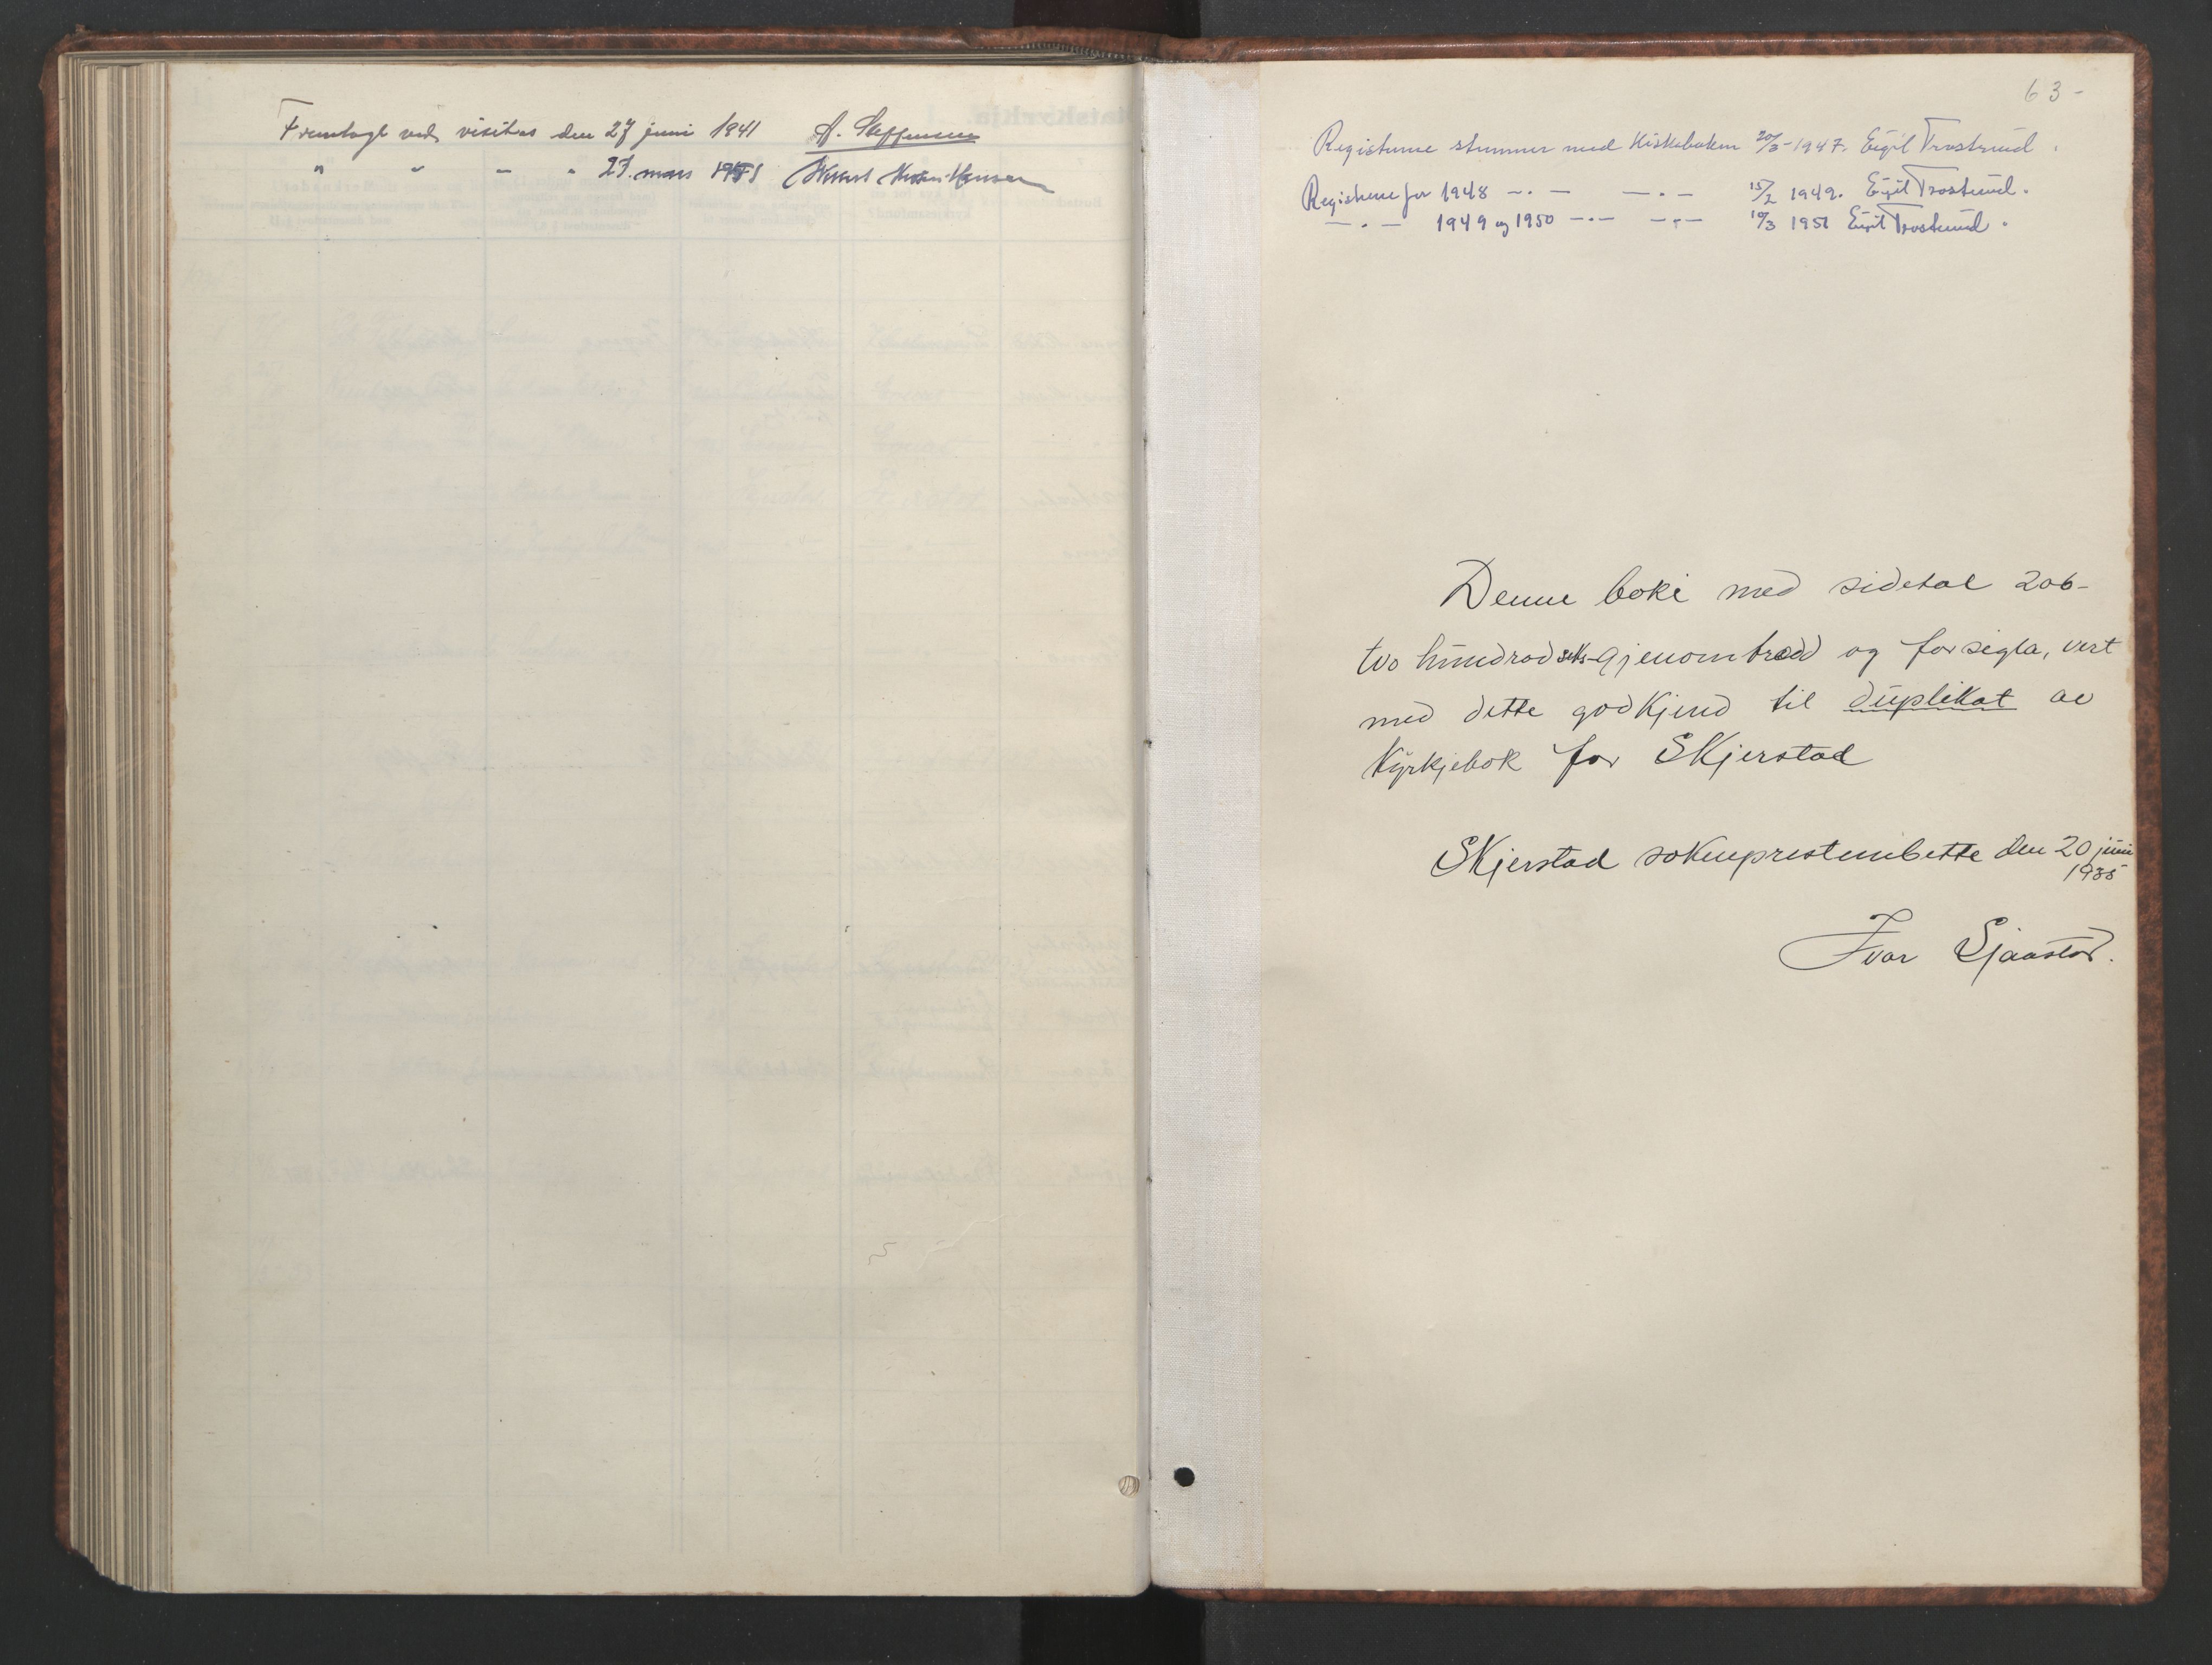 Fremlagt ved visitas den 27 juni 1941 A. Steffensen
" " " " 27. mars 1951
63-
Registrene stemmer med Kirkeboken 20/3-1947. Eigil Trostrud.
Registrene for 1948 —.— —.— 15/2 1949. Eigil Trostrud.
—.— 1949 og 1950 —.— —.— 10/3 1951 Eigil Trostrud.
Denne boki med sidetal 206-
tvo hundrad seks-gjenomtrædd og forsigla, vert
med dette godkjend til duplikat av
Kyrkjebok for Skjerstad
Skjerstad sokneprestembette den 20 juni
1935
Ivar Sjaastad.